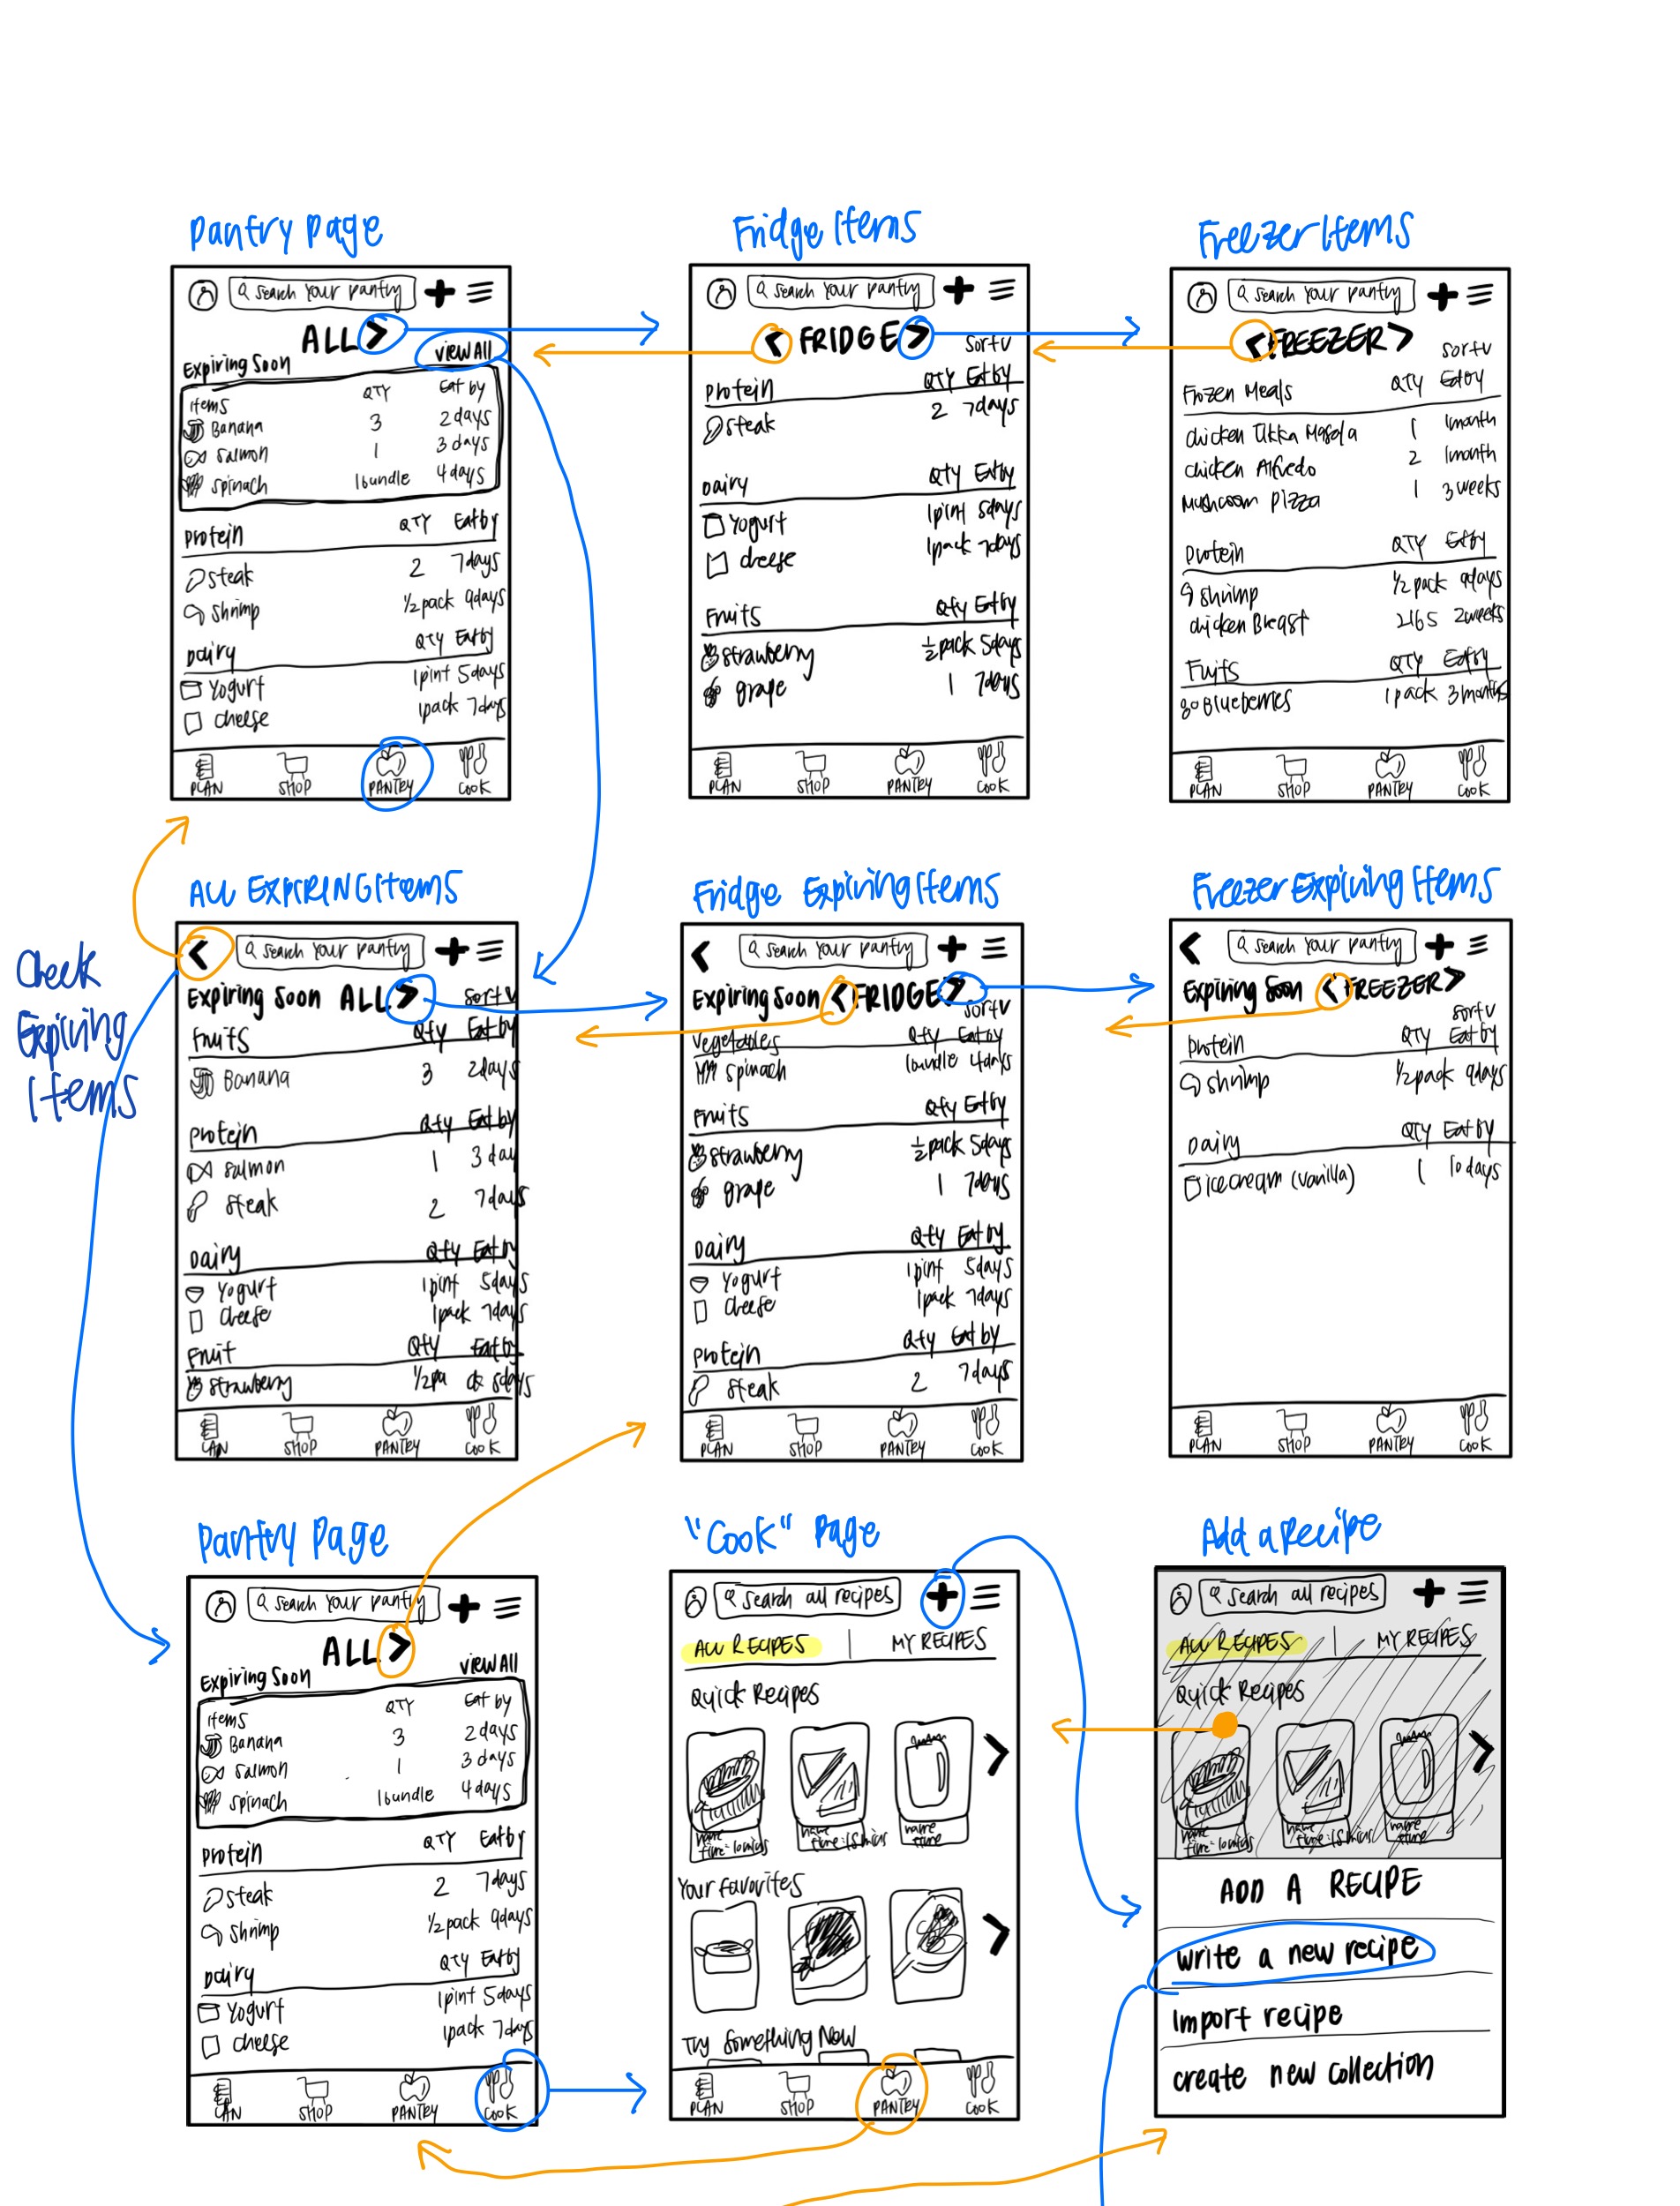 Pantry Page
Search Your Pantry
ALL >
Expiring Soon
View All
Items QTY Eat by
Banana 3 2 days
Salmon 1 3 days
Spinach 1 bundle 4 days
Protein QTY Eat by
Steak 2 7 days
Shrimp 1/2 pack 9 days
Dairy QTY Eat by
Yogurt 1 pint 5 days
Cheese 1 pack 7 days
PLAN SHOP PANTRY COOK
Fridge Items
Search Your Pantry
< FRIDGE >
Sort v
Protein QTY Eat by
Steak 2 7 days
Dairy QTY Eat by
Yogurt 1 pint 5 days
Cheese 1 pack 7 days
Fruits Qty Eat by
Strawberry 1/2 pack 5 days
grape 1 7 days
PLAN SHOP PANTRY COOK
Freezer Items
Search Your Pantry
< FREEZER >
Sort v
Frozen Meals QTY Eat by
Chicken Tikka Masala 1 1 month
Chicken Alfredo 2 1 month
Mushroom Pizza 1 3 weeks
Protein QTY Eat by
Shrimp 1/2 pack 9 days
Chicken Breast 2 lbs 2 weeks
Fruits QTY Eat by
Blueberries 1 pack 3 months
PLAN SHOP PANTRY COOK
Check
Expiring
Items
ALL EXPIRING Items
<
Search Your Pantry
Expiring Soon ALL >
Sort v
Fruits Qty Eat by
Banana 3 2 days
Protein Qty Eat by
Salmon 1 3 day
Steak 2 7 days
Dairy Qty Eat by
Yogurt 1 pint 5 days
Cheese 1 pack 7 days
Fruit Qty Eat by
Strawberry 1/2 pa ck 5 days
LAN SHOP PANTRY COOK
Fridge Expiring Items
<
Search Your Pantry
Expiring Soon < FRIDGE >
Sort v
Vegetables Qty Eat by
Spinach 1 bundle 4 days
Fruits Qty Eat by
Strawberry 1/2 pack 5 days
grape 1 7 days
Dairy Qty Eat by
Yogurt 1 pint 5 days
Cheese 1 pack 7 days
Protein Qty Eat by
Steak 2 7 days
PLAN SHOP PANTRY COOK
Freezer Expiring Items
<
Search Your Pantry
Expiring Soon < FREEZER >
Sort v
Protein QTY Eat by
Shrimp 1/2 pack 9 days
Dairy QTY Eat by
ice cream (vanilla) 1 10 days
PLAN SHOP PANTRY COOK
Pantry Page
Search Your Pantry
ALL >
Expiring Soon
View All
Items QTY Eat by
Banana 3 2 days
Salmon 1 3 days
Spinach 1 bundle 4 days
Protein QTY Eat by
Steak 2 7 days
Shrimp 1/2 pack 9 days
Dairy QTY Eat by
Yogurt 1 pint 5 days
Cheese 1 pack 7 days
LAN SHOP PANTRY COOK
"Cook" Page
Search all recipes
ALL RECIPES | MY RECIPES
Quick Recipes
name
time: 10 mins
name
time: 15 mins
name
time
>
Your favorites
>
Try Something New
PLAN SHOP PANTRY COOK
Add a Recipe
Search all recipes
ALL RECIPES | MY RECIPES
Quick Recipes
name
time: 10 mins
name
time: 15 mins
name
time
>
ADD A RECIPE
Write a new recipe
Import recipe
Create new collection